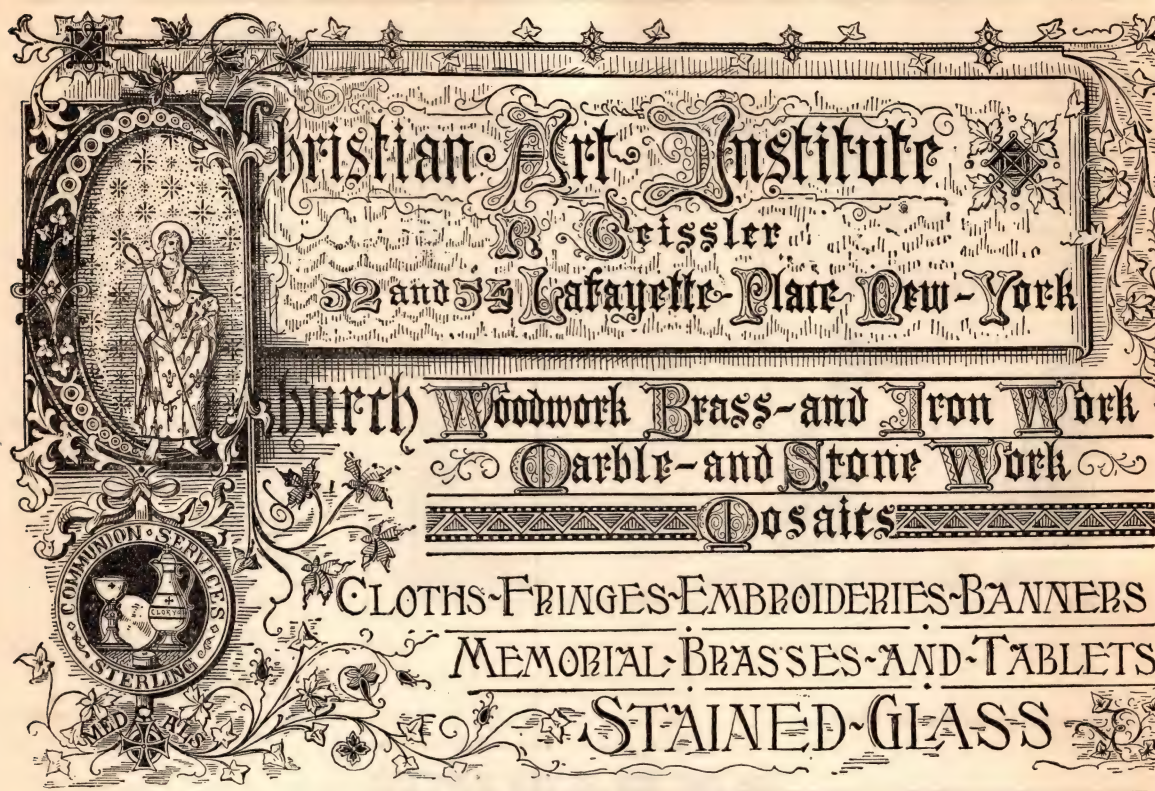 Christian Art Institute
R. Geissler
52 and 54 Lafayette-Place New-York
Church Woodwork Brass-and Iron Work
Marble-and Stone Work
Mosaics
CLOTHS-FRINGES-EMBROIDERIES-BANNERS
MEMORIAL-BRASSES-AND-TABLETS
STAINED-GLASS
COMMUNION·SERVICES
STERLING
MEDALS